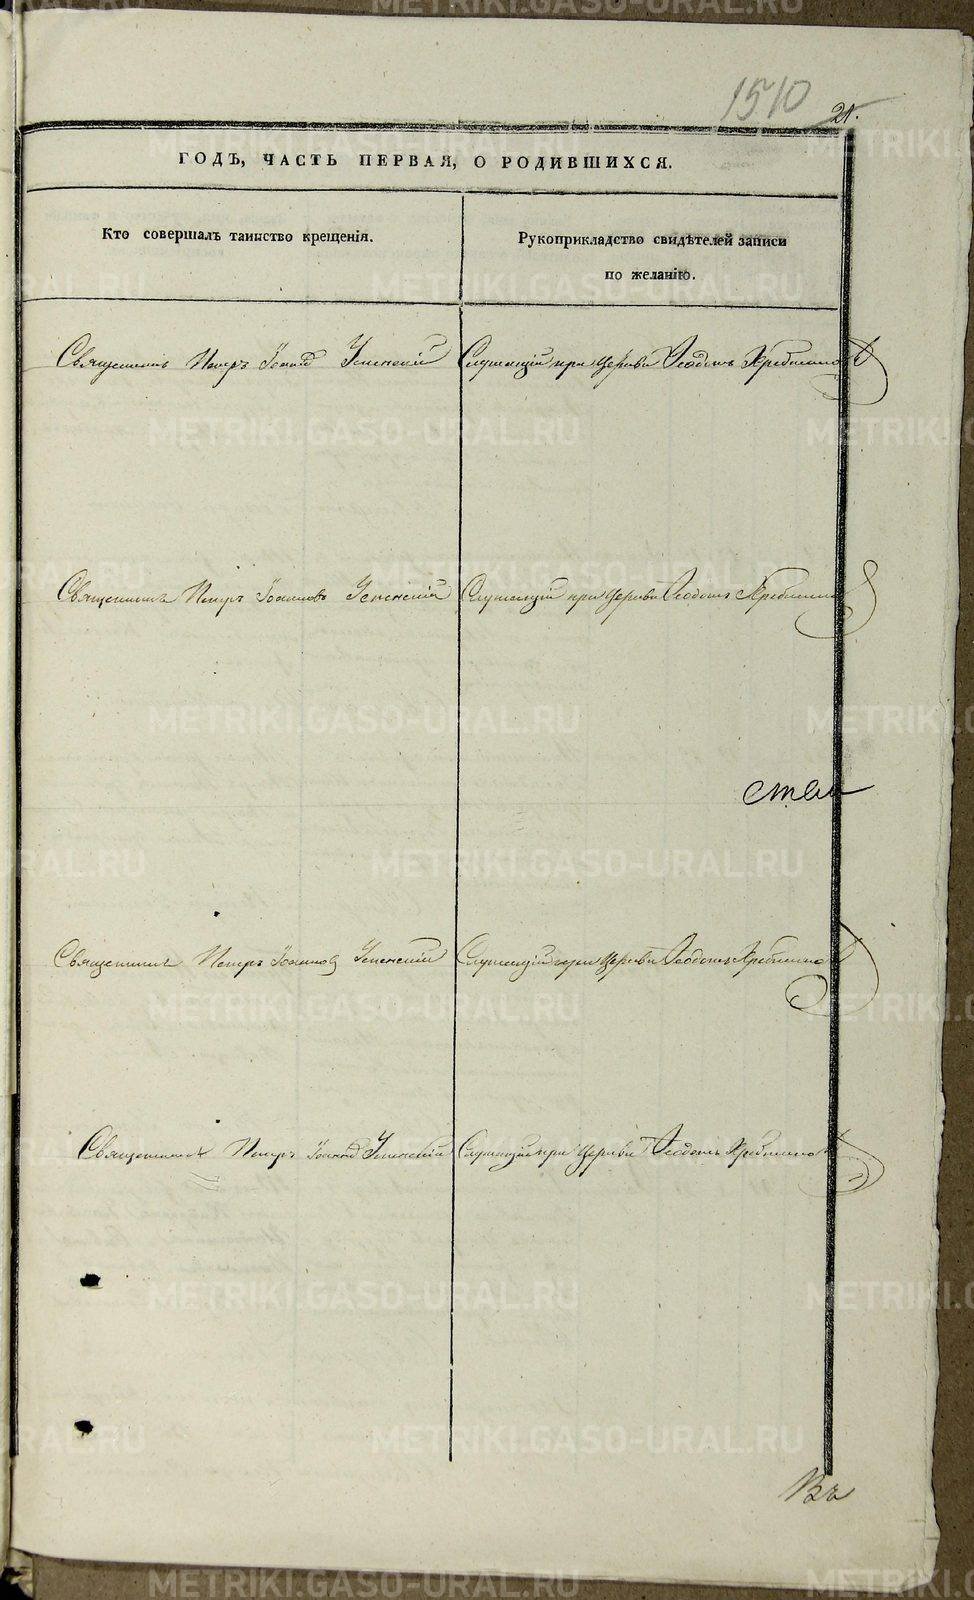 1510
21.
ГОДЪ, ЧАСТЬ ПЕРВАЯ, О РОДИВШИХСЯ.
Кто совершалъ таинство крещенія.
Рукоприкладство свидѣтелей записи
по желанію.
Священникъ Петръ Іоанновъ Успенскій
Служащій при Церкви Ѳеодотъ
Священникъ Петръ Іоанновъ Успенскій
Служащій при Церкви Ѳеодотъ
Священникъ Петръ Іоанновъ Успенскій
Служащій при Церкви Ѳеодотъ
Священникъ Петръ Іоанновъ Успенскій
Служащій при Церкви Ѳеодотъ
Въ
METRIKI.GASO-URAL.RU